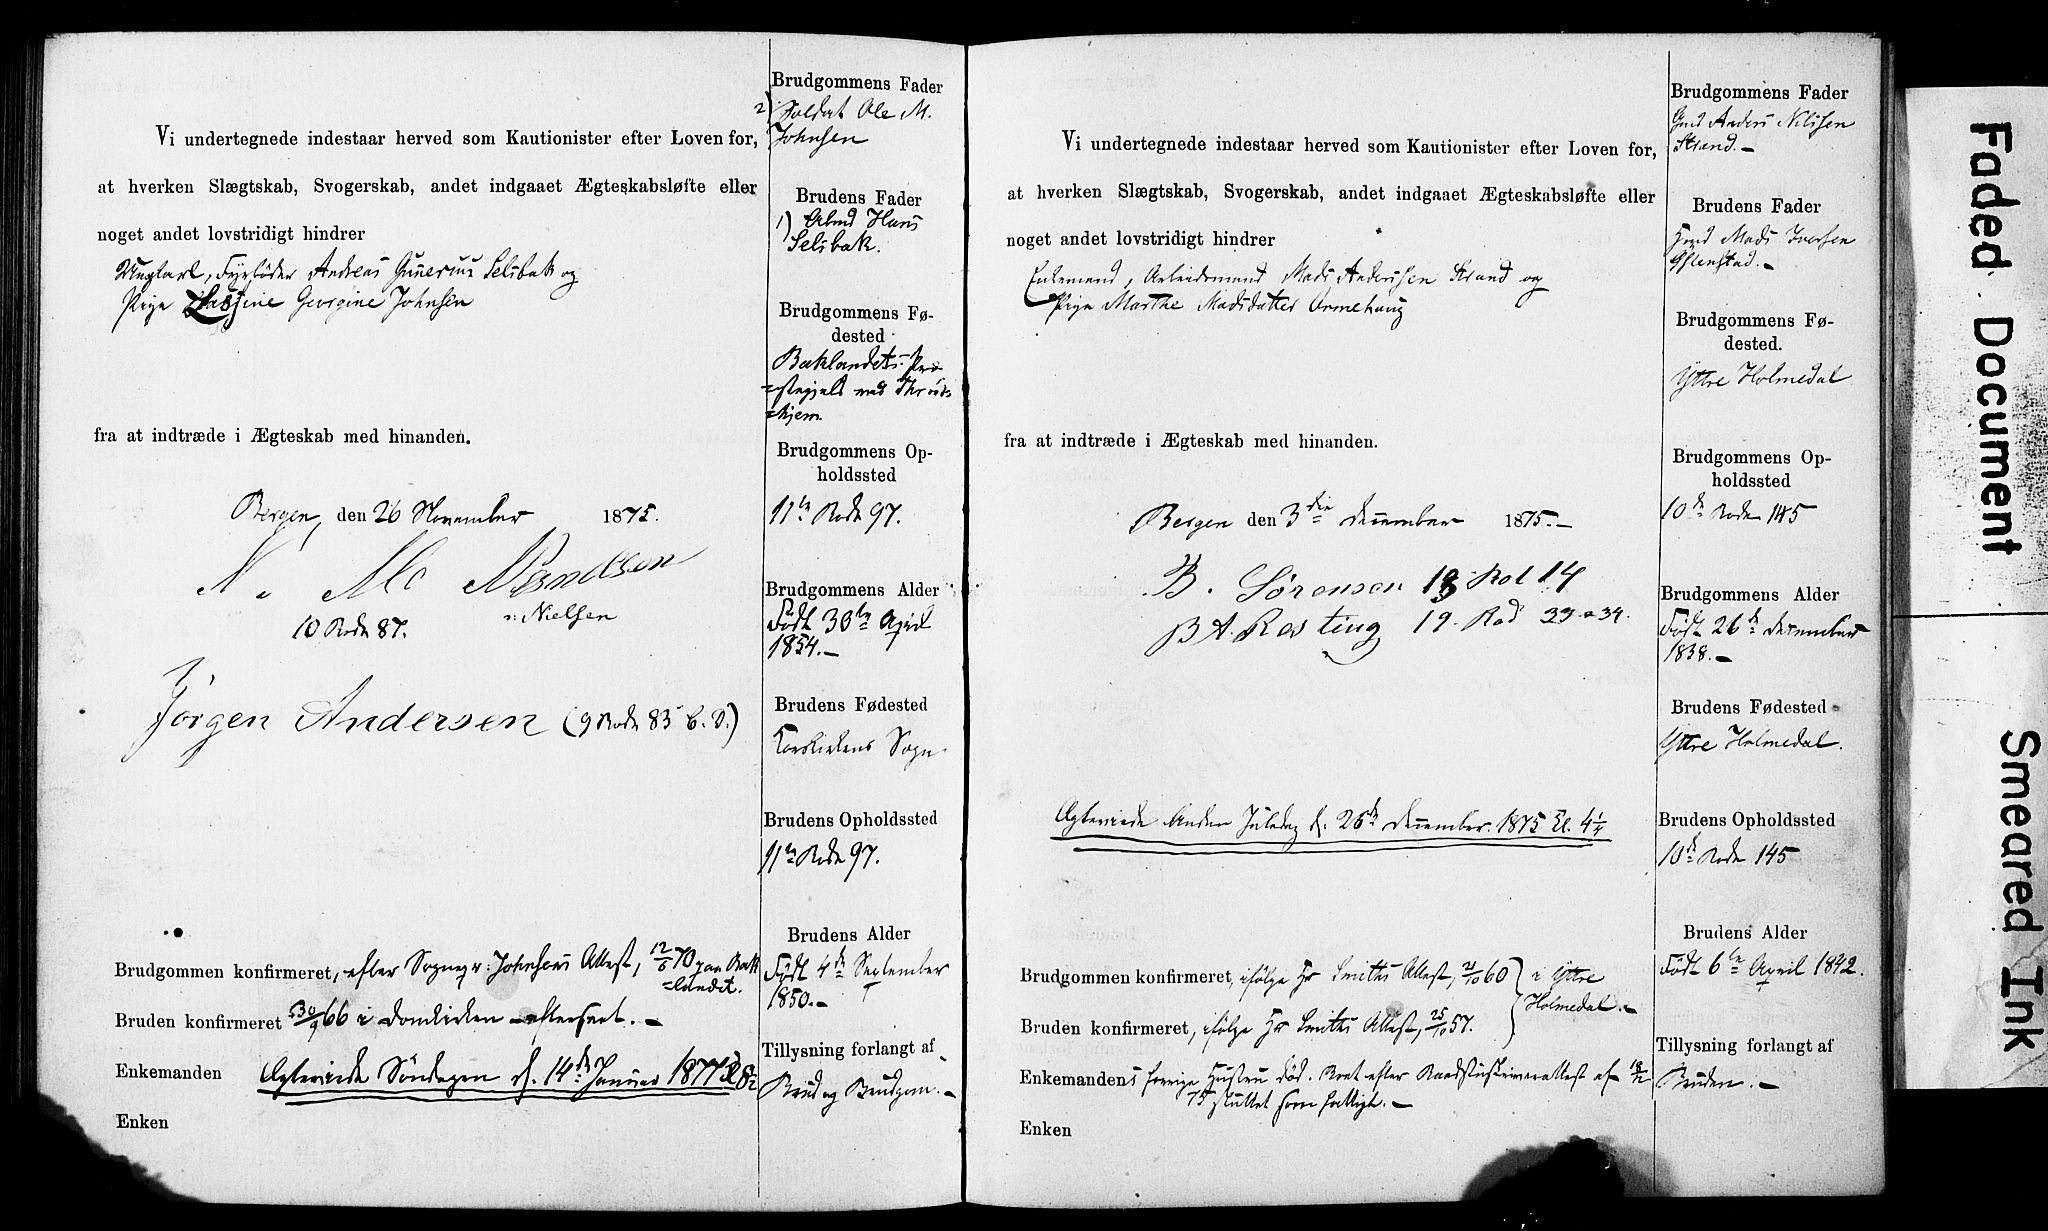 Vi undertegnede indestaar herved som Kautionister efter Loven for,
at hverken Slægtskab, Svogerskab, andet indgaaet Ægteskabsløfte eller
noget andet lovstridigt hindrer
Ungkarl, Fyrbøder Andreas Gunerius Selsbak og
Pige Georgine Johnsen
fra at indtræde i Ægteskab med hinanden.
Bergen, den 26 November 1875.
N. Mo Nesndlsen
v: Nielsen
10 Rode 87.
Jörgen Andersen (9 Rode 85 C. D.)
Brudgommen konfirmeret, efter Sognepr: Johnsens Attest, 12/6 70 paa Bak
=landet.
Bruden konfirmeret 30/9 66 i Domkirken - eftersaat. -
Enkemanden
Ægteviede Söndagen d. 14de Januar 1877
Enken
Brudgommens Fader
2) Soldat Ole M.
Johnsen
Brudens Fader
1) Arbmd Hans
Selsbak.
Brudgommens Fø-
dested
Baklandets Præ
=stegjeld ved Thronds
=hjem.
Brudgommens Op-
holdssted
11te Rode 97.
Brudgommens Alder
Født 30te April
1854. -
Brudens Fødested
Korskirkens Sogn
Brudens Opholdssted
11te Rode 97.
Brudens Alder
Født 4de September
1850. -
Tillysning forlangt af
Brud og Brudgom. -
Vi undertegnede indestaar herved som Kautionister efter Loven for,
at hverken Slægtskab, Svogerskab, andet indgaaet Ægteskabsløfte eller
noget andet lovstridigt hindrer
Enkemand, Arbeidsmand Mads Andersen Strand og
Pige Marthe Madsdatter Ormehaug
fra at indtræde i Ægteskab med hinanden.
Bergen den 3die December 1875. -
B. Sørensen 13 Rod 14
B A. Rosting 19. Rod 33 a 34.
Ægteviede Anden Juledag d. 26de December 1875 Kl. 4 1/4
Brudgommen konfirmeret, ifølge Hr Smiths Attest, 21/10 60 } i Yttre
Holmedal. -
Bruden konfirmeret, ifølge Hr Smiths Attest, 25/10 57.
Enkemandens forrige Hustru død. Boet efter Raadstueskriverattest af
75 sluttet som fattigt. -
Enken
Brudgommens Fader
Gmd Anders Nilssen
Strand. -
Brudens Fader
Hmd Mads Iversen
Brudgommens Fø-
dested.
Yttre Holmedal
Brudgommens Op-
holdssted
10de Rode 145
Brudgommens Alder
Født 26de December
1838. -
Brudens Fødested
Yttre Holmedal.
Brudens Opholdssted
10de Rode 145
Brudens Alder
Født 6te April 1842.
Tillysning forlangt af
Bruden. -
Faded Document
Smeared Ink